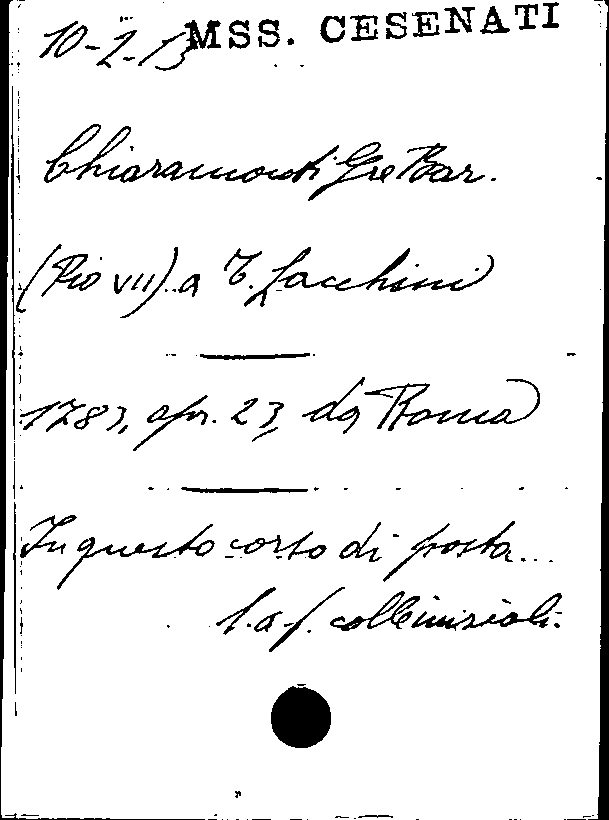 10-2-13 MSS. CESENATI
Chiaramonti Gre Bar.
(Pio VII) a T. Zacchini
1783, apr. 23, da Roma
In questo corso di posta...
l. a f. coll'iniziali.